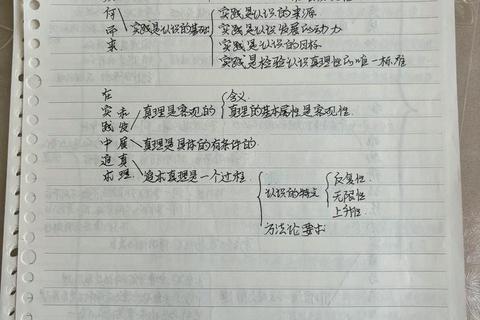 何
而
来
实践是认识的基础
实践是认识的来源
实践是认识发展的动力
实践是认识的目的
实践是检验认识真理性的唯一标准
在实践中追求
和发展真理
真理是客观的
含义
真理的基本属性是客观性
真理是具体的有条件的
追求真理是一个过程
认识的特点
反复性
无限性
上升性
方法论要求